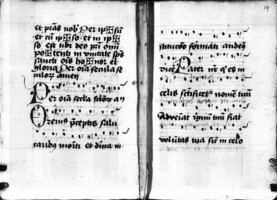 et p̄nīs nob̄ Per ip✠sū
et cū ip✠so et in ip✠
so est tibi deo pri om̄i
po✠tenti in unitate sp̄s
sancti ois ho✠nor et
gloria Per oīa secula se
culoꝝ amen
Per oīa secla scloꝝ am
Oremus p̄ceptis salu
taribȝ moīti et diuina in
stitucōe formati audem̄
dicē Pater nr̄ q̄ es in
celis scīficet² nomē tuū
Adveīat regnū tuū fiat
volūtas tua sic̄ in celo